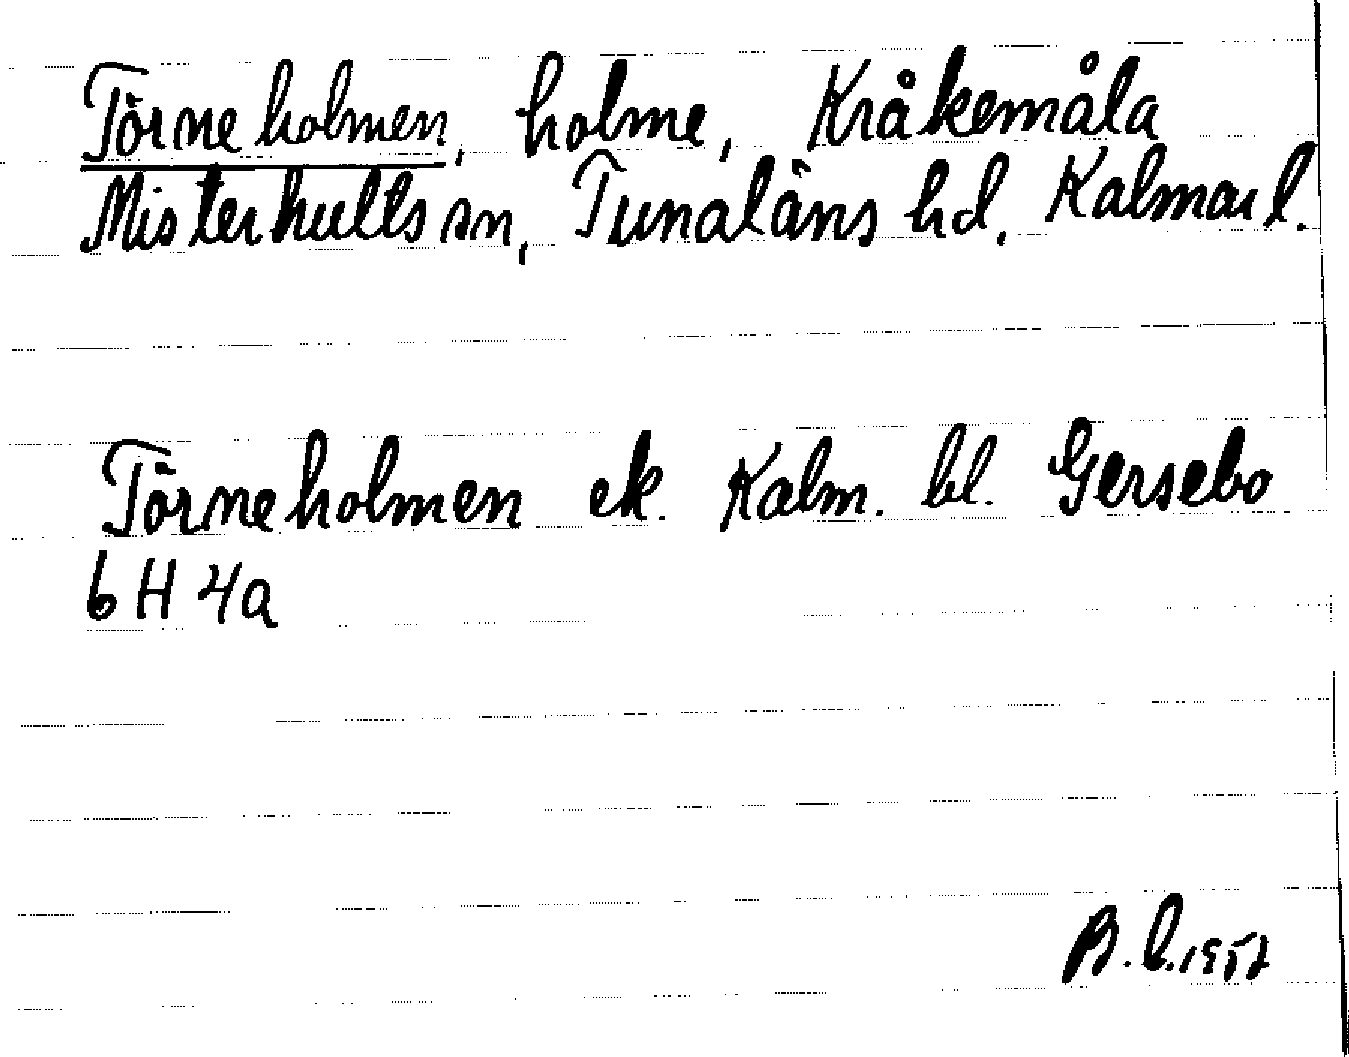 Törneholmen, holme, Kråkemåla
Misterhults sn, Tunaläns hd, Kalmar l.
Törneholmen ek. Kalm. bl. Gersebo
6 H 4a
B.L. 1952